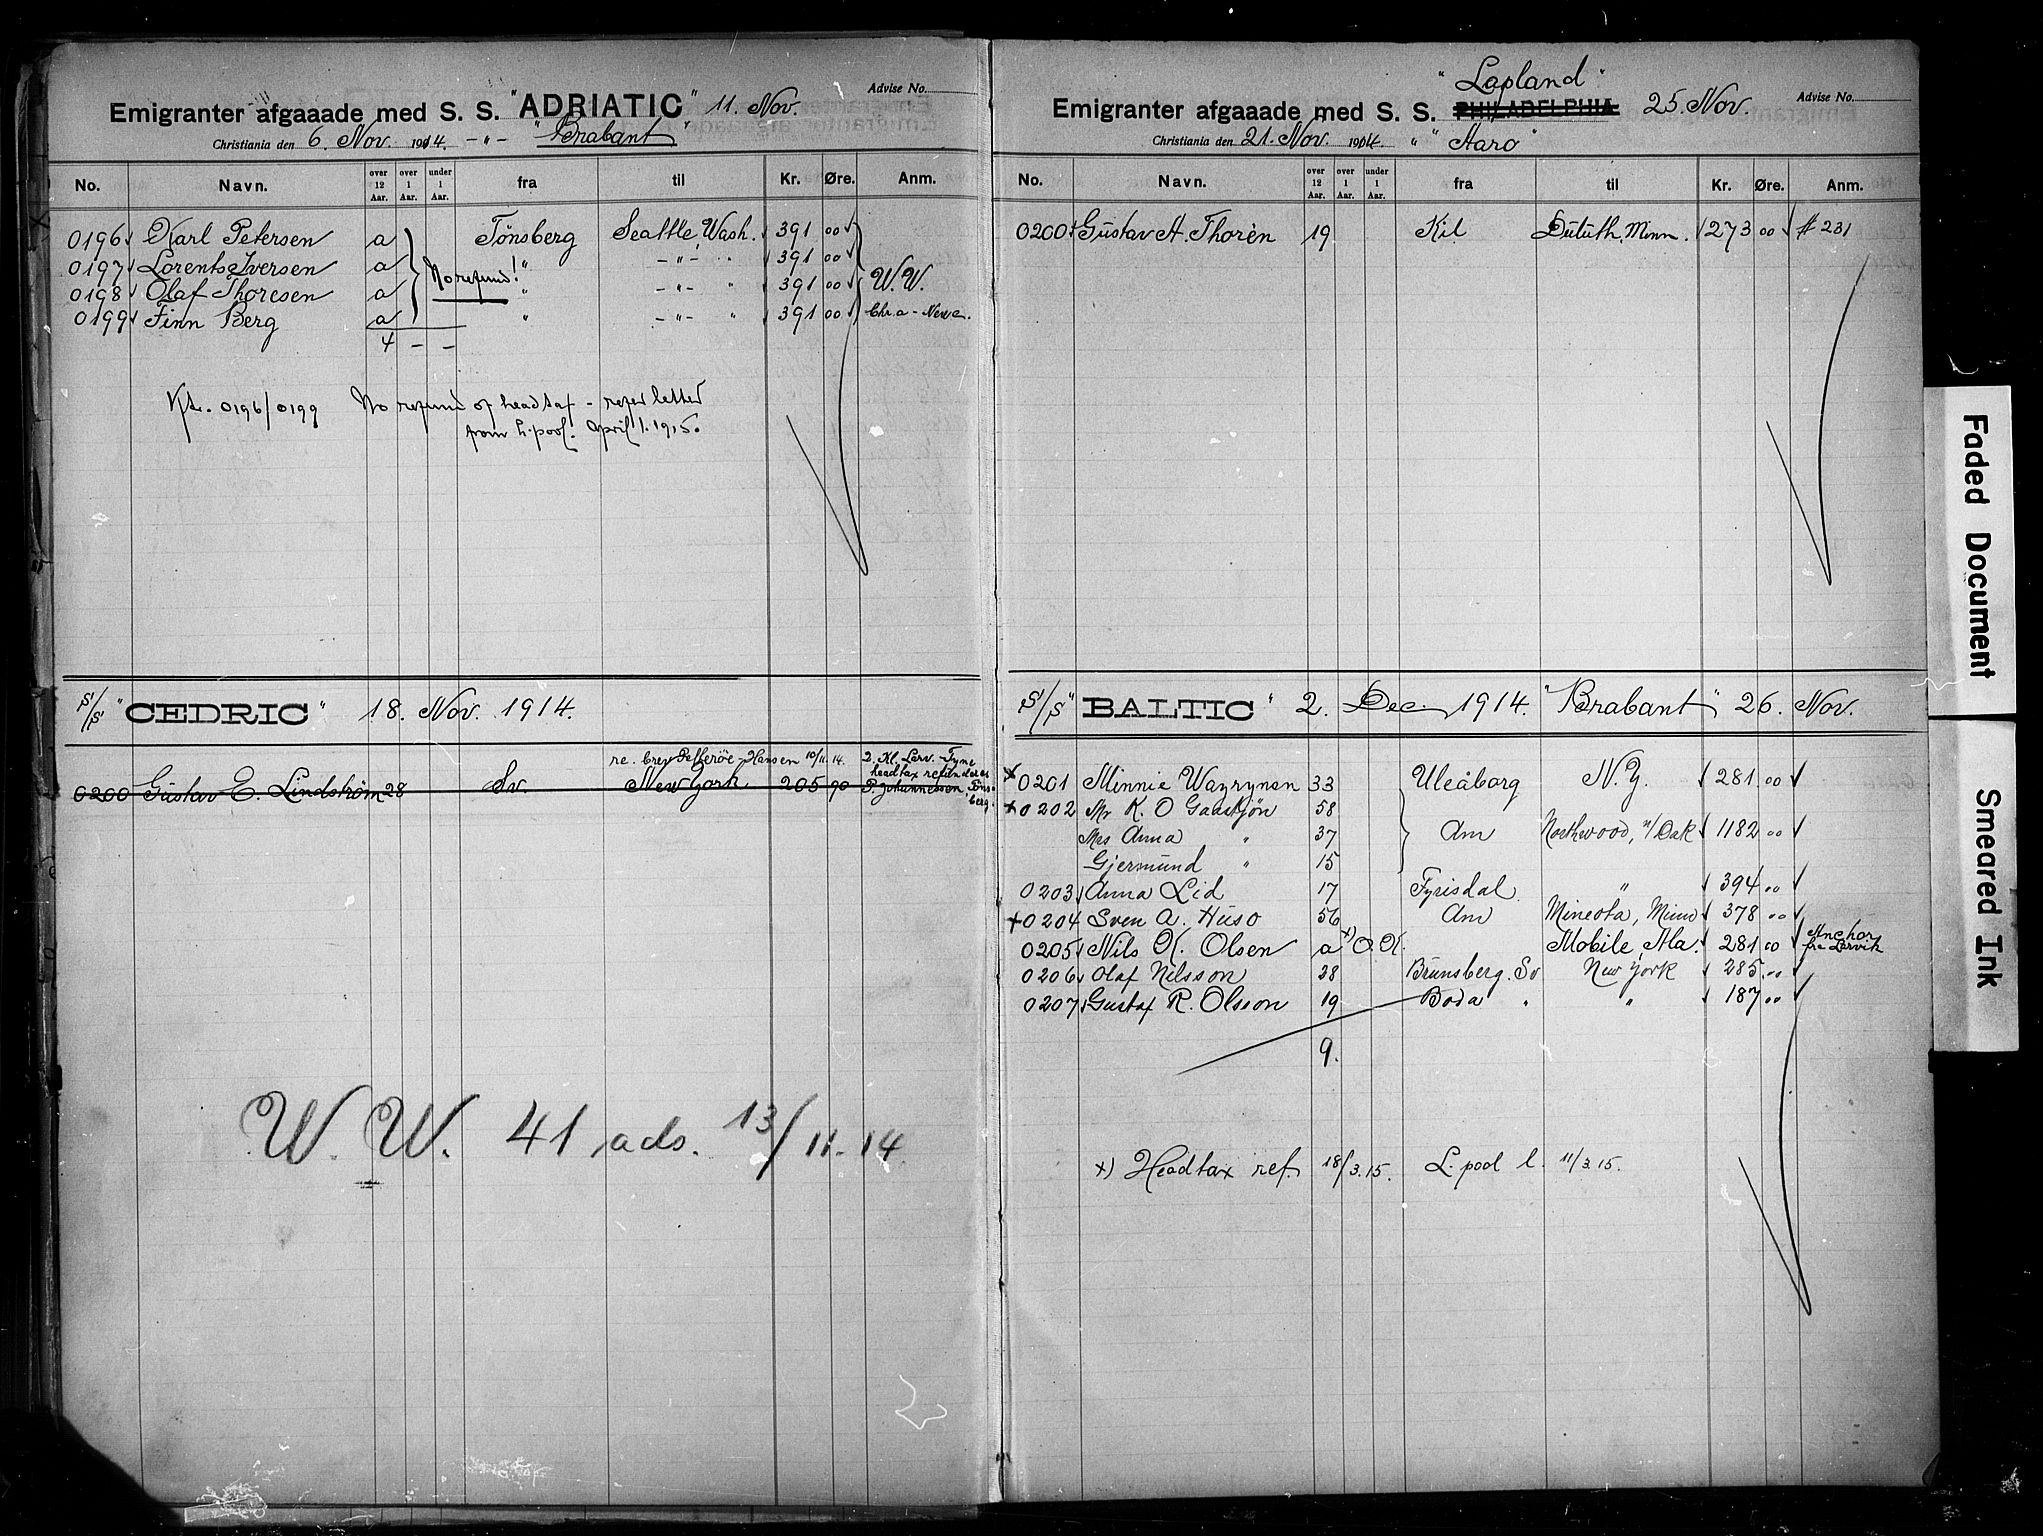 Advise No.
Emigranter afgaaade med S. S. "ADRIATIC" 11. Nov.
Christiania den 6. Nov. 1914. -"- "Brabant"
No. Navn. over 12 Aar. over 1 Aar. under 1 Aar. fra til Kr. Øre. Anm.
0196 Karl Petersen a Tönsberg Seattle, Wash. 391 00
0197 Lorents Iversen a " -"- " 391 00
No refund! W. W.
0198 Olaf Thoresen a " -"- " 391 00
0199 Finn Berg a " -"- " 391 00 Chr.a - Newc.
4 - -
0196/0199 No refund of head tax - refer letter
from L.pool. April 1. 1915.
S/S "CEDRIC" 18. Nov. 1914.
re. brev Hansen 10/11.14. 2. Kl. Larv.-Tyne
headtax refunderes
0200 Gustav E. Lindström 28 Sv. New York 205 90 P. Johannessen Töns-
berg.
W. W. 41 ads. 13/11.14
"Lapland"
Advise No.
Emigranter afgaaade med S. S. PHILADELPHIA 25. Nov.
Christiania den 21. Nov. 1914. " "Aaro"
No. Navn. over 12 Aar. over 1 Aar. under 1 Aar. fra til Kr. Øre. Anm.
0200 Gustav A. Thorèn 19 Kil Duluth, Minn. 273 00 # 231
S/S "BALTIC" 2. Dec. 1914. "Brabant" 26. Nov.
x 0201 Minnie Wayrynen 33 Uleåborg N. Y. 281 00
x 0202 Mr K. O 58
Mrs Anna " 37 Am Northwood, n/Dak 1182 00
Gjermund " 15
0203 Anna Lid 17 Fyrisdal " 394 00
x 0204 Sven A. Huso 56 Am Mineota, Minn 378 00
0205 Nils K. Olsen a x) O.K. Mobile, Ala. 281 00 Anchor
fra Larvik
0206 Olaf Nilsson 28 Brunsberg. Sv New York 285 00
0207 Gustaf R. Olsson 19 Boda " " 187 00
9.
x) Headtax ref. 18/3.15. L.pool l. 11/3.15.
Faded Document
Smeared Ink